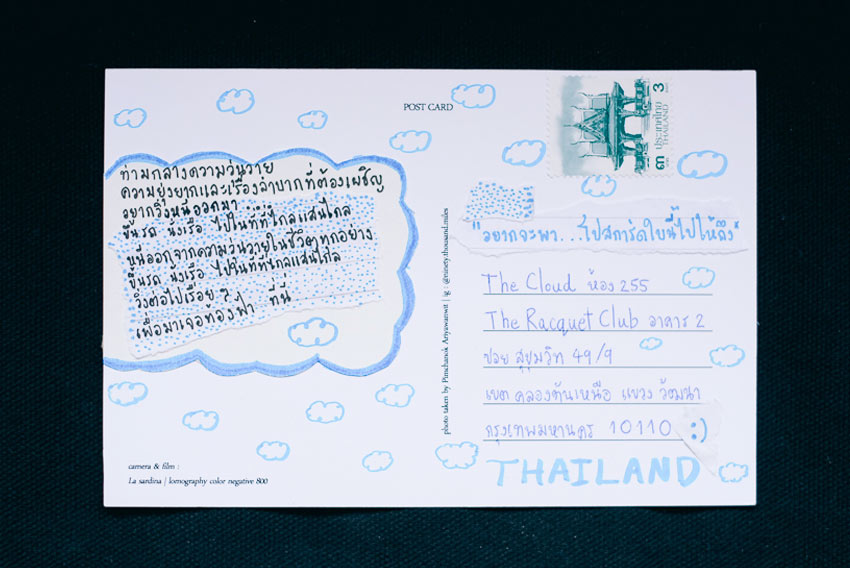 POST CARD
ท่ามกลางความวุ่นวาย
ความยุ่งยากและเรื่องลำบากที่ต้องเผชิญ
อยากวิ่งหนีออกมา
ขึ้นรถ นั่งเรือ ไปในที่ที่ไกลแสนไกล
หนีออกจากความวุ่นวายในชีวิตทุกอย่าง
ขึ้นรถ นั่งเรือ ไปในที่ที่ไกลแสนไกล
วิ่งต่อไปเรื่อย ๆ
เพื่อมาเจอท้องฟ้า ที่นี่
camera & film :
La sardina | lomography color negative 800
photo taken by Pimchanok Ariyawanwit | ig : @ninety.thousand.miles
๓ ประเทศไทย 3
THAILAND
"อยากจะพา...โปสการ์ดใบนี้ไปให้ถึง"
The Cloud ห้อง 255
The Racquet Club อาคาร 2
ซอย สุขุมวิท 49/9
เขต คลองตันเหนือ แขวง วัฒนา
กรุงเทพมหานคร 10110 :)
THAILAND